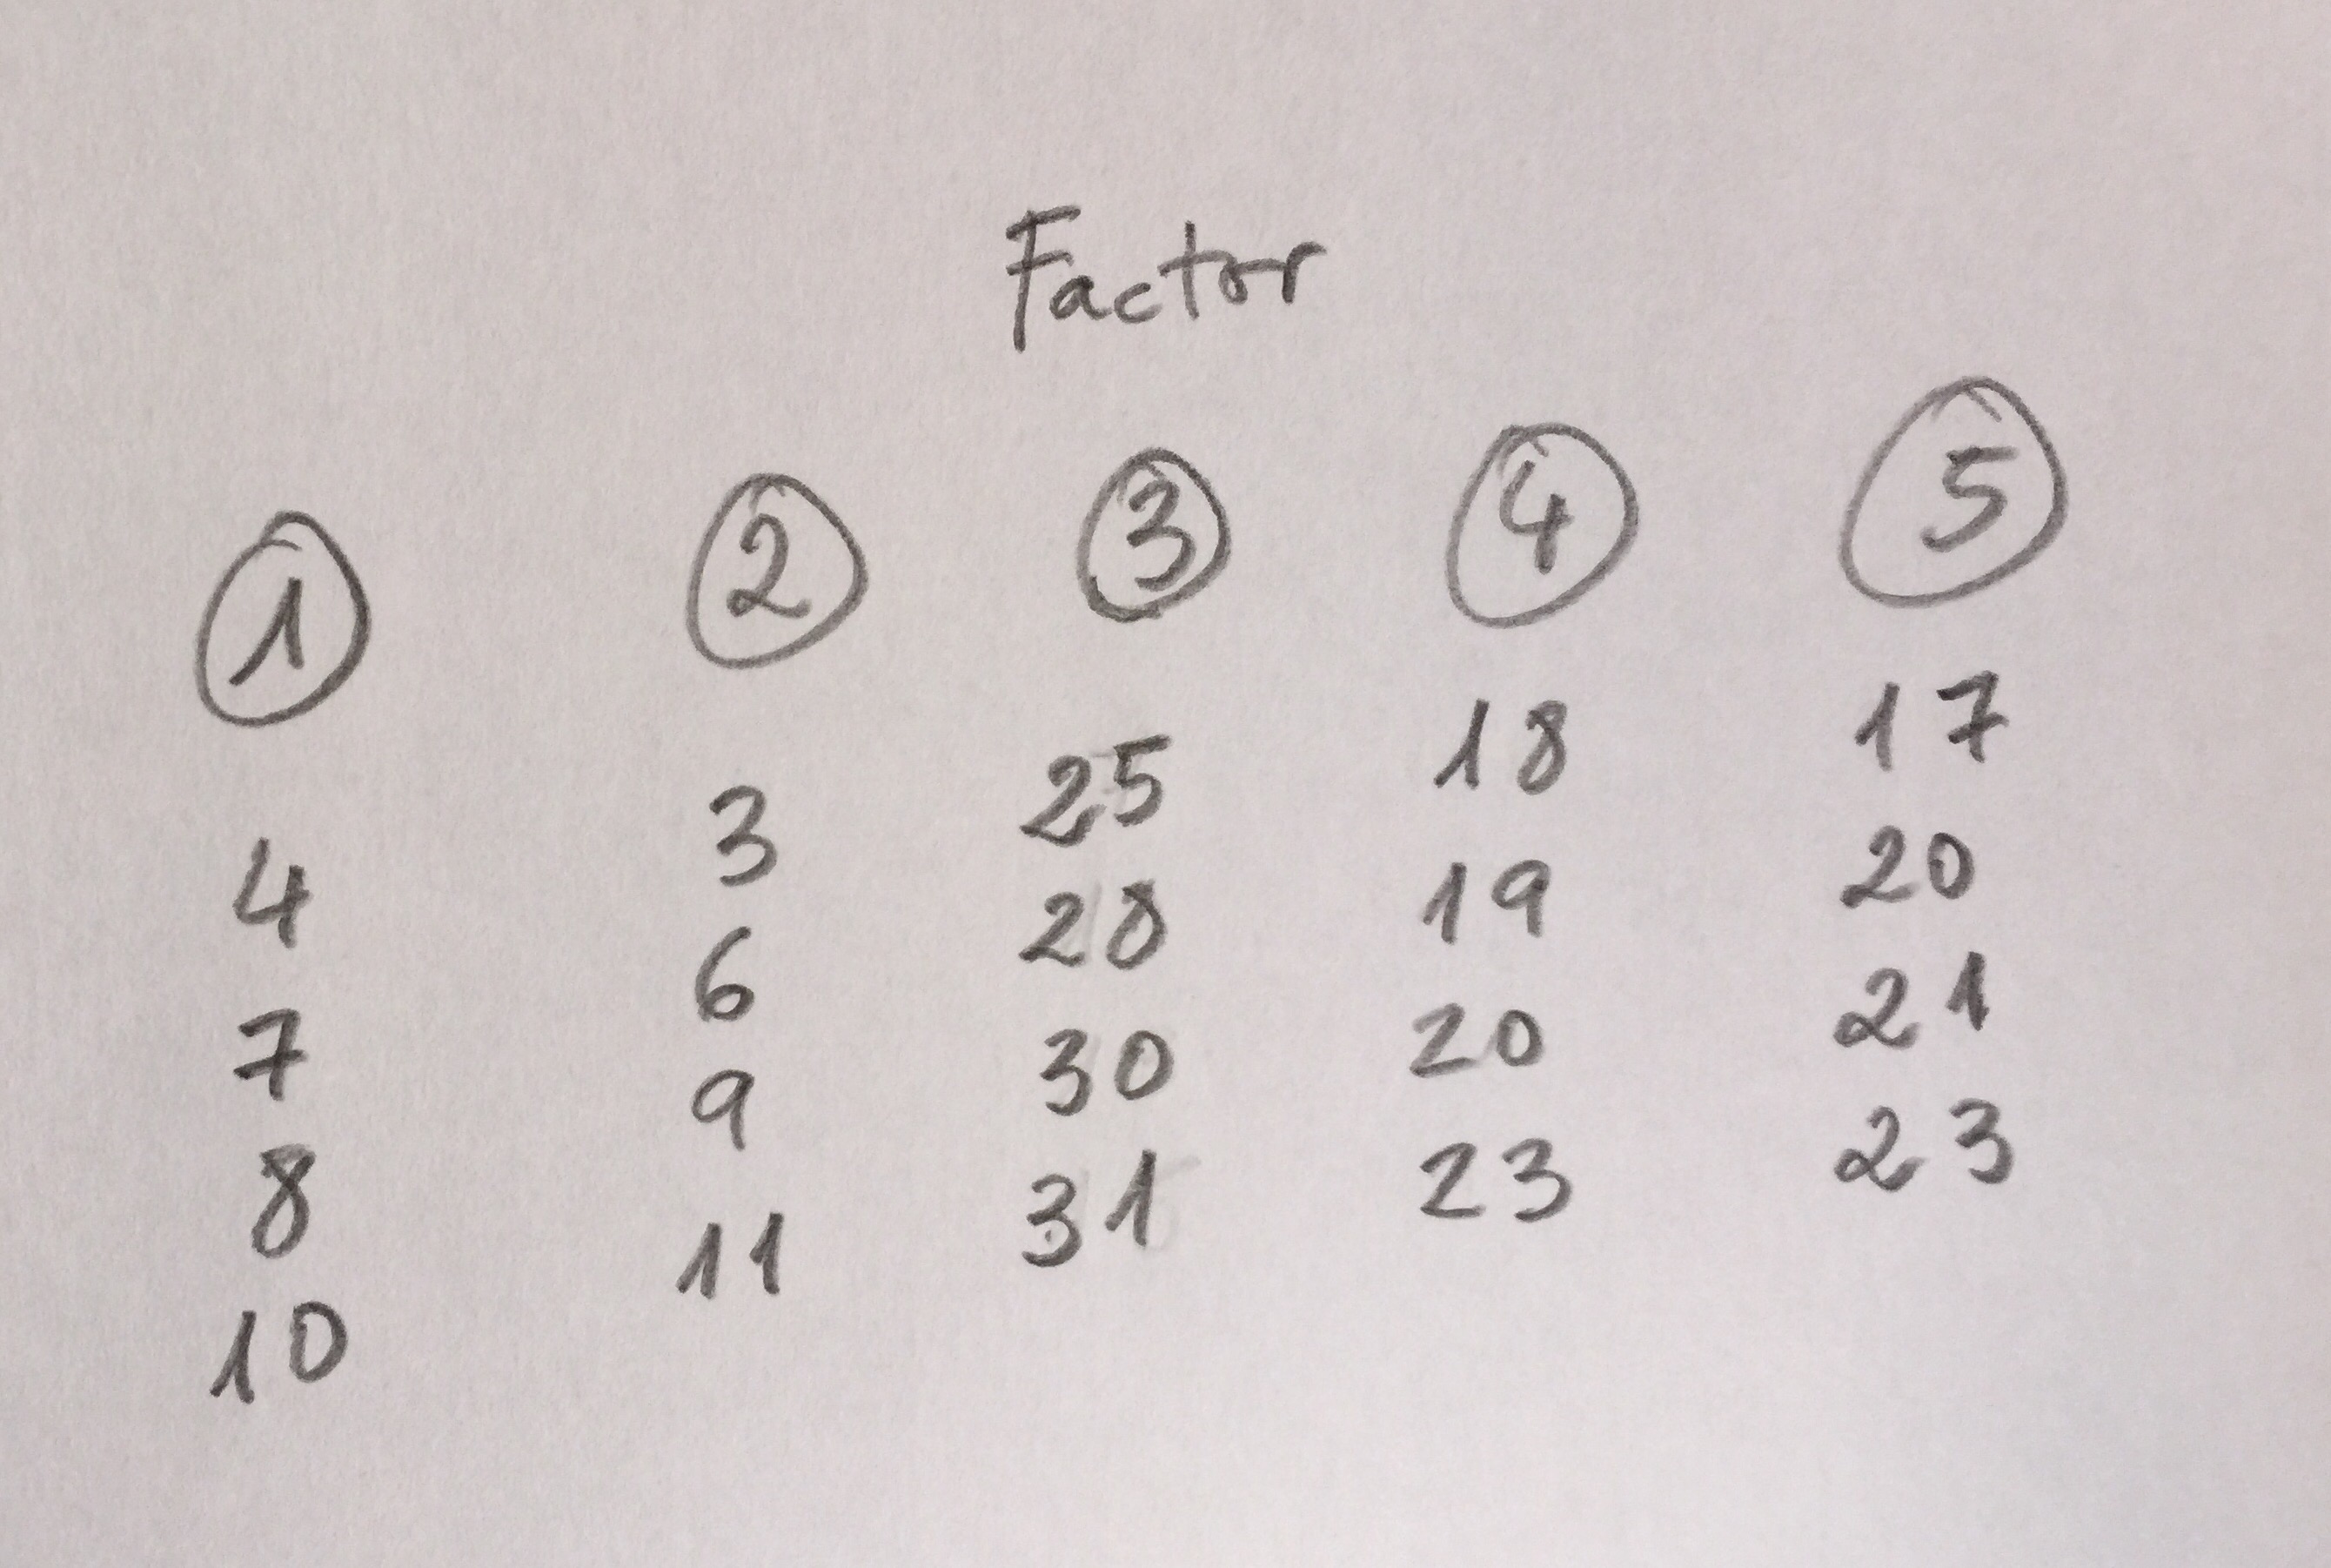 Factor
1 2 3 4 5
4 3 25 18 17
7 6 28 19 20
8 9 30 20 21
10 11 31 23 23